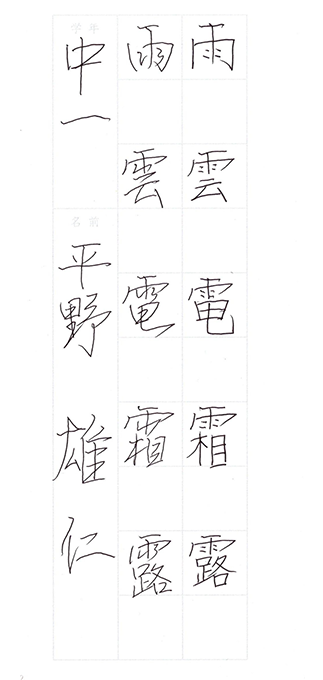 雨 雲 電 霜 露
雨 雲 電 霜 露
学年 中一 名前 平野 雄仁